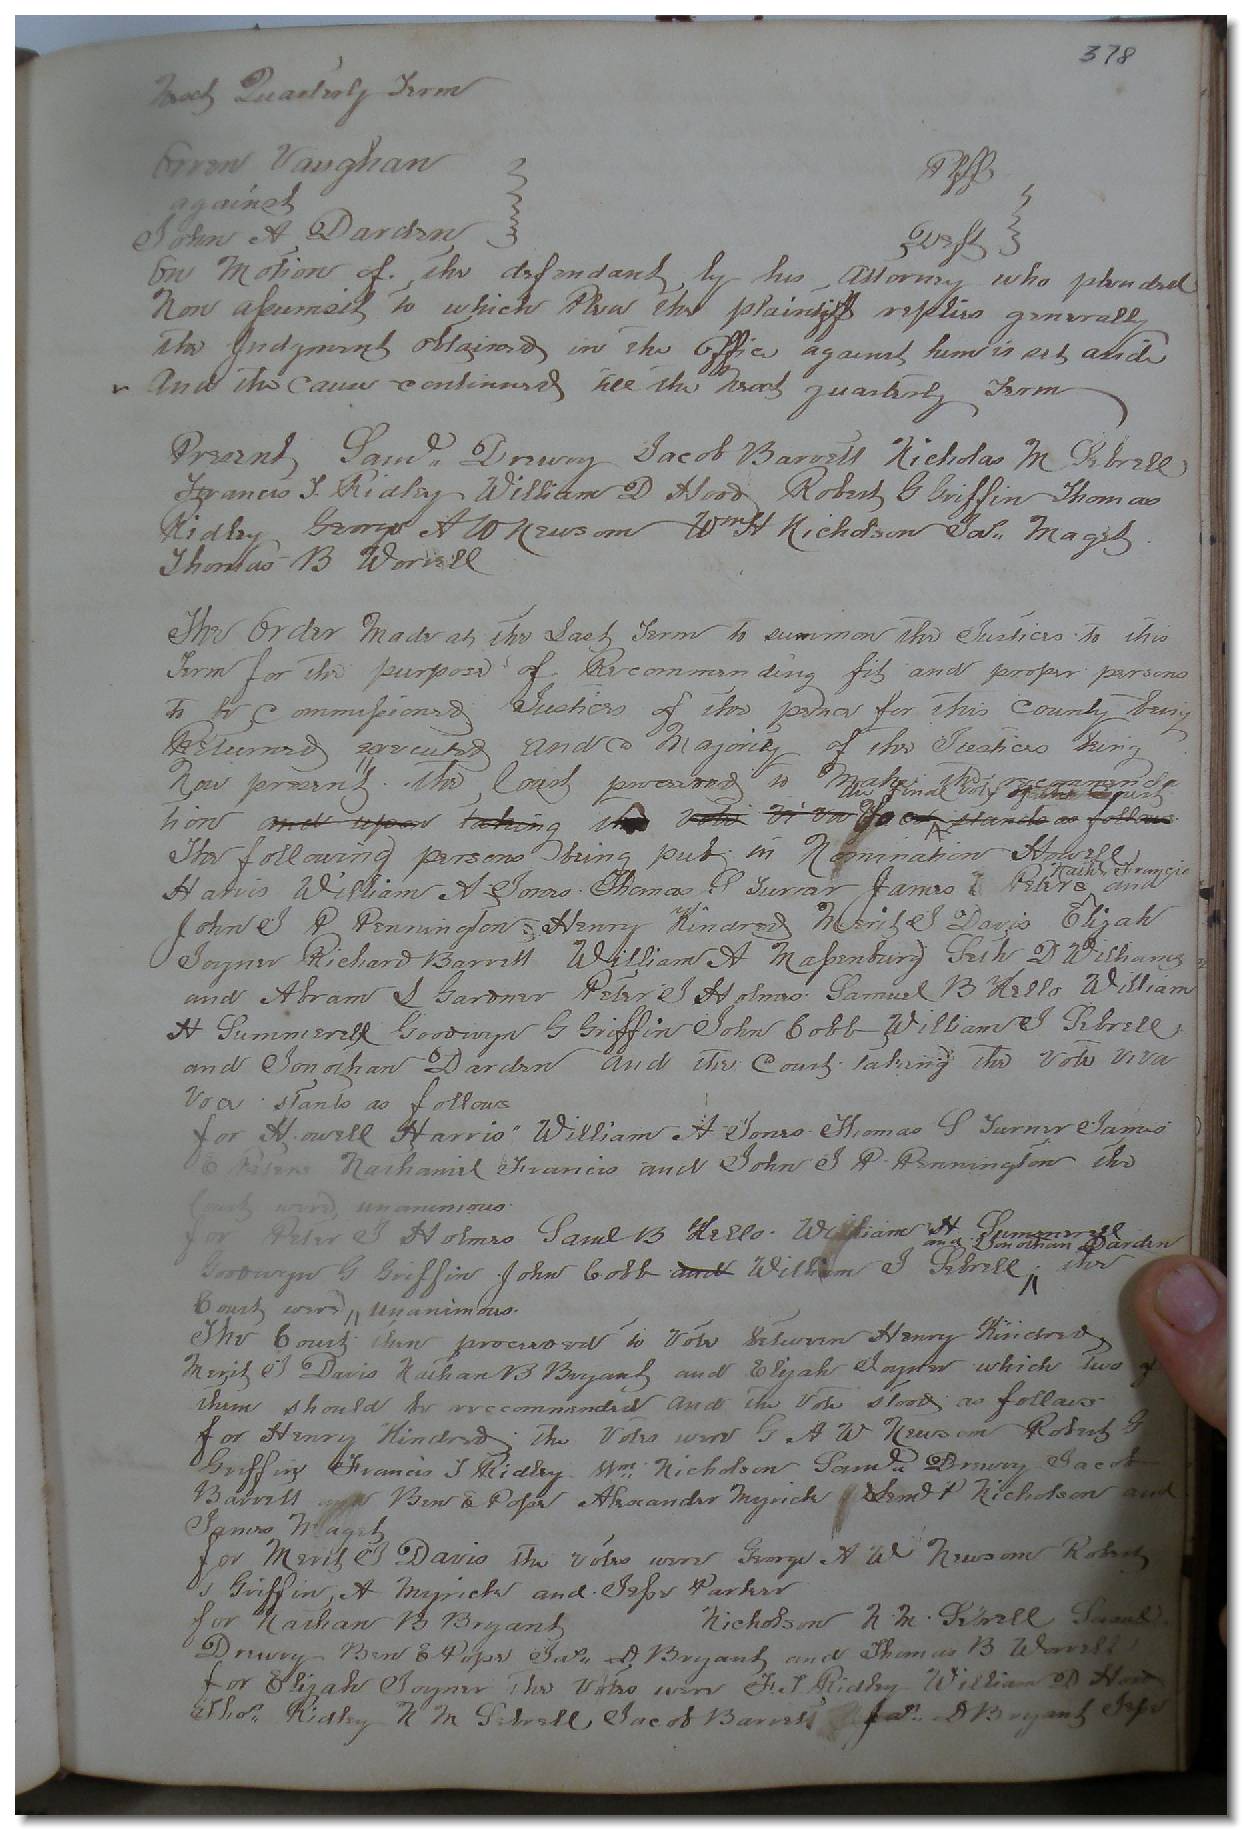 378
Next Quarterly Term
Oren Vaughan Plff
against
John A Darden Deft
On Motion of the defendant by his attorney who pleaded
Non assumsit to which Plea the plaintiff replies generally
the Judgment obtained in the Office against him is set aside
And the cause continued till the Next quarterly Term
Present Saml. Drewry Jacob Barrett Nicholas M Sebrell
Francis T. Ridley William D Hood Robert G Griffin Thomas
Ridley George A W Newsom Wm H Nicholson Jas. Maget
Thomas B Worrell
The Order Made at the Last Term to summon the Justices to this
Term for the purpose of Recommending fit and proper persons
to be Commissioned Justices of the peace for this County being
Returned executed and a Majority of the Justices being
Now present the Court proceeded to Make the recommenda
the final vote of the Court
tion and upon taking the vote viva voce stands as follows
The following persons being put in Nomination Howell
Harris William A Jones Thomas S Turner James E Peters Nathl. Francis and
John J P Pennington Henry Kindred Merit J Davis Elijah
Joyner Richard Barrett William A Massenburg Seth D Williams
and Abram L Gardner Peter J Holmes Samuel B Kello William
H Summerell Goodwyn G Griffin John Cobb William J Sebrell
and Jonathan Darden And the Court taking the Vote viva
voce stants as follows
for Howell Harris William A Jones Thomas S Turner James
E Peters Nathaniel Francis and John J P Pennington the
Court were unanimous
for Peter J Holmes Saml B Kello William H Summerell
and Jonathan Darden
Goodwyn G Griffin John Cobb and William J Sebrell the
Court were unanimous
The Court then proceeded to Vote between Henry Kindred
Merit J Davis Nathan B Bryant and Elijah Joyner which two of
them should be reccommended and the Vote stood as follows
for Henry Kindred the Votes were G A W Newsom Robert G
Griffin Francis T Ridley Wm. Nicholson Saml. Drewry Jacob
Barrett Ben E Pope Alexander Myrick P Nicholson and
James Maget
for Merit J Davis the votes were George A W Newsom Robert
G Griffin A Myrick and Jesse Parker
for Nathan B Bryant Nicholson N. M. Sebrell Saml.
Drewry Ben E Pope Jas. D Bryant and Thomas B Worrell
for Elijah Joyner the Votes were F. T Ridley William D Hood
Tho. Ridley N M Sebrell Jacob Barrett Jas. D Bryant Jesse